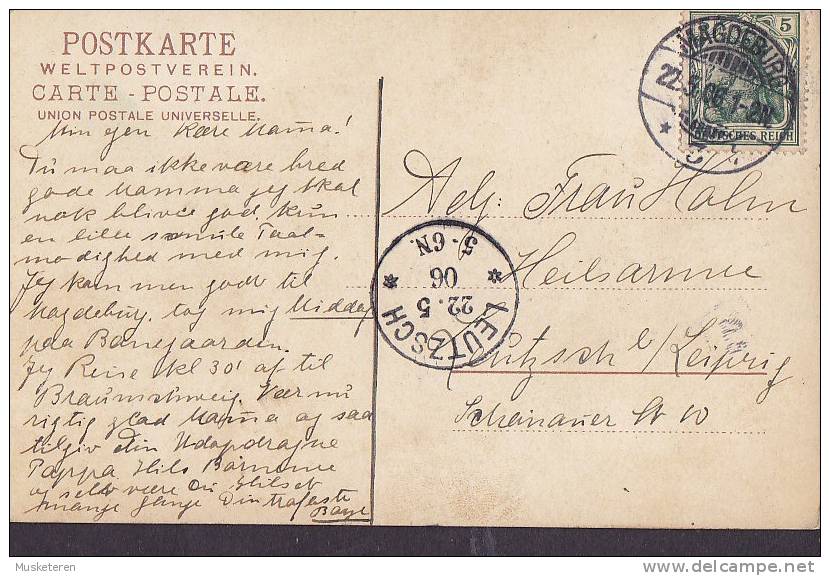 POSTKARTE
WELTPOSTVEREIN.
CARTE - POSTALE.
UNION POSTALE UNIVERSELLE.
Min egen kære Mama!
Du maa ikke være bred
gode Mamma jeg skal
nok blive god, kun
en lille smule Taal-
modighed med mig.
Jeg kommer godt til
Magdeburg, tog mig Middag
paa Banegaarden.
Jeg Reise kl 30' af til
Braunschweig. Vær nu
rigtig glad Mama og saa
tilgiv din
Pappa Hils Børnene
og selv være Du Hilset
mange gange Din
MAGDEBURG
22.5.06. 1-2N.
5
DEUTSCHES REICH
Adj: Frau Holm
Heilsarmee
Leutzsch b/Leipzig
Schönauer Str 10
LEUTZSCH
22.5
06
5-6N.
Musketeren
delcampe.net